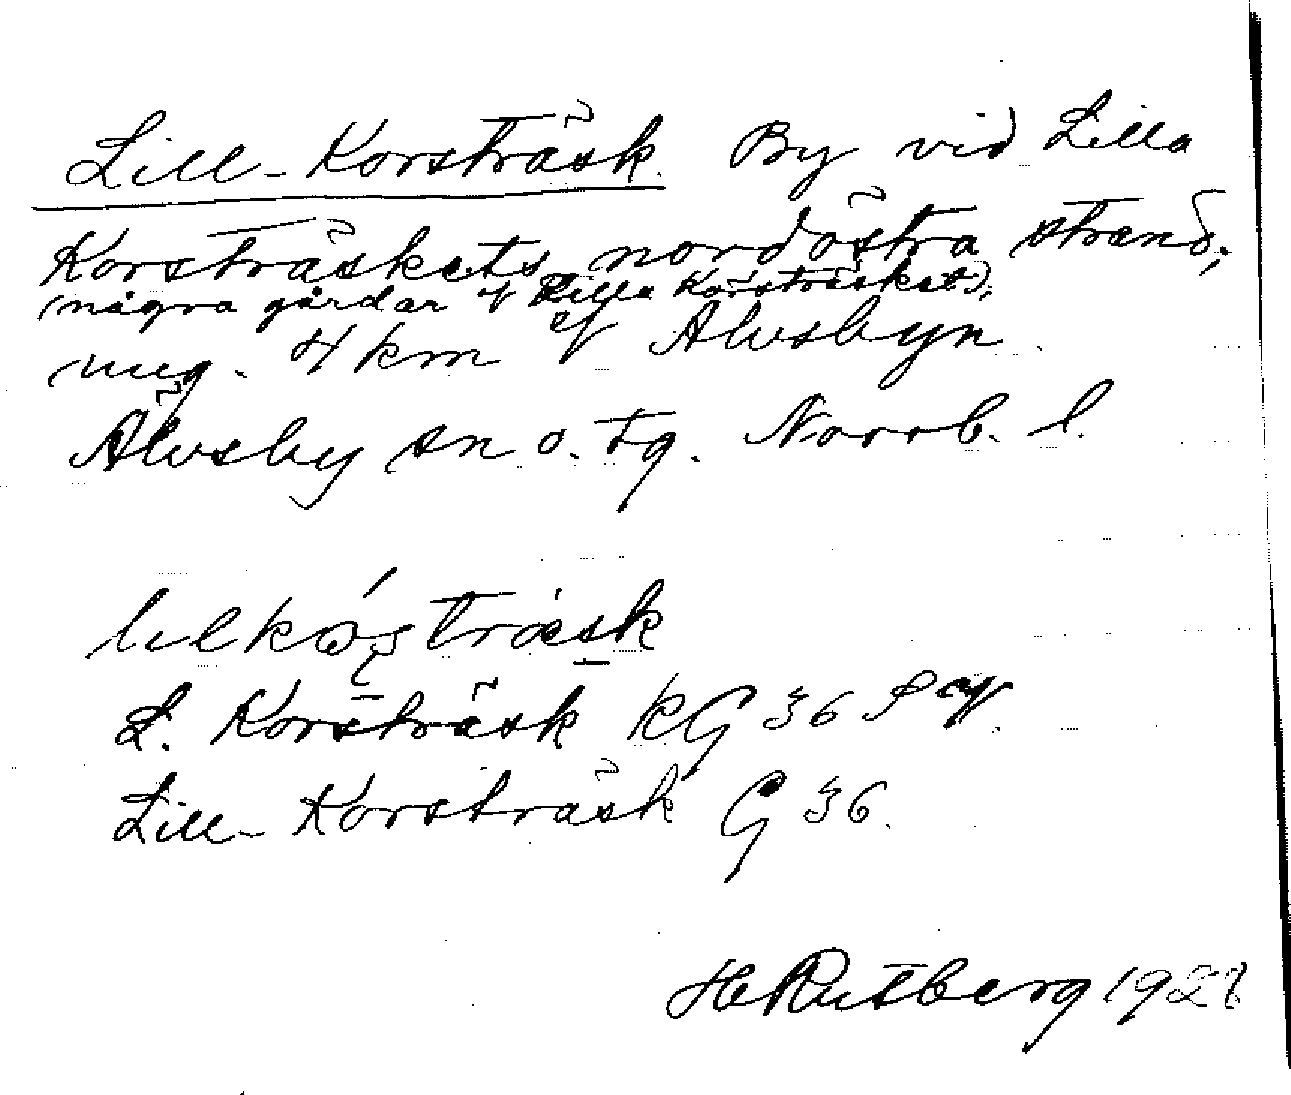 Lill-Korsträsk. By vid Lilla
Korsträskets nordöstra strand;
(några gårdar v Lilla Korsträsket);
ung. 4 km v Älvsbyn.
Älvsby sn o. tg. Norrb. l.
L. Korsträsk KG 36
Lill-Korsträsk G 36.
H Rutberg 1928